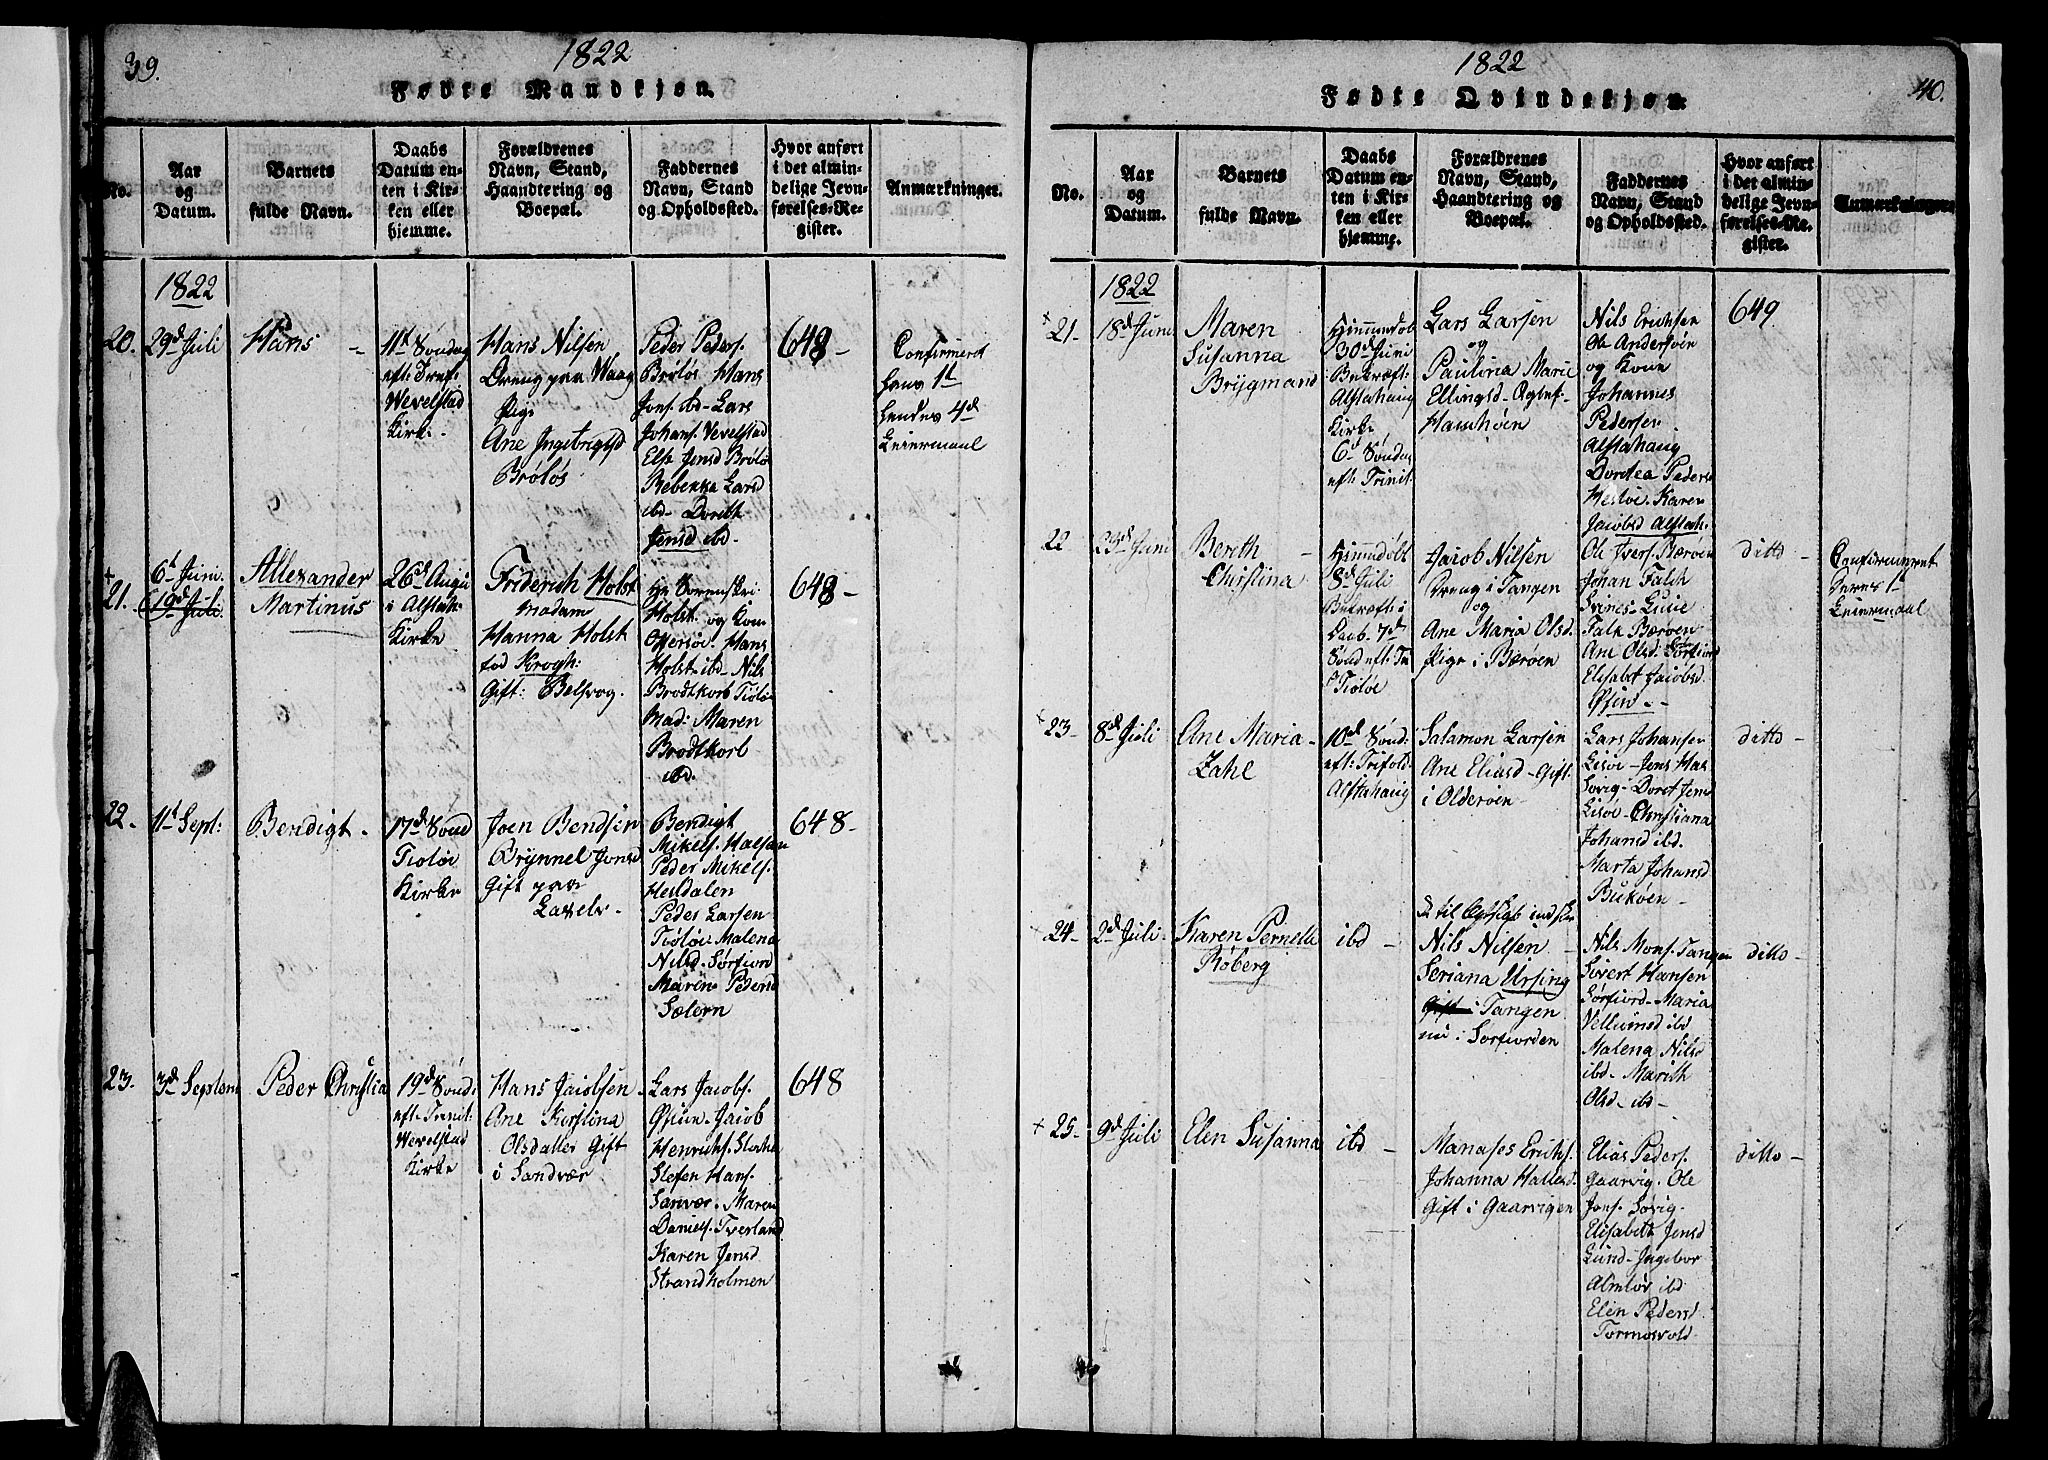 39.
1822
Fødte Mandkjøn.
No.
Aar
og
Datum.
Barnets
fulde Navn.
Daabs
Datum en-
ten i Kir-
ken eller
hjemme.
Forældrenes
Navn, Stand,
Haandtering og
Boepæl.
Faddernes
Navn, Stand
og Opholdssted.
Hvor anført
i det almin-
delige Jevn-
førelses-Re-
gister.
Anmærkninger.
1822
20.
29d Juli
Hans
11t Søndag
eft: Tref:
Wevelstad
Kirke.
Hans Nilsen
Dreng paa Waag
Pige
Ane Ingebrigtsd
Brøløs
Peder Peders.
Brøløs Hans
Jons. ibd - Lars
Johans. Vevelstad
Else Jensd Brølø
Rebekka Larsd
ibd - Doreth
Jensd ibd -
648 -
Confirmeret
hans 1t
hendes 4d
Leiermaal
+
21.
6t Juni
19d Juli
Allexander
Martinus
26d Augu
i Alstah:
Kirke
Friderich Holst
Madam
Hanna Holst
fød Krogh:
Gift: Belsvog.
Hr Sorenskri
Holst og Kone
Hans
Holst ibd - Nils
Brodtkorb Tiøtøe
Mad: Maren
Brodtkorb
ibd.
648 -
22.
11t Sept:
Bendigt -
17d Sønd
Tiøtøe
Kirke
Joen Bendsen
Brynnel Jonsd
Gift paa
Bendigt
Mikels.
Peder Mikels.
Hesldalen
Peder Larsen
Tiøtøe Malena
Nilsd. Sørfiord
Maren Pedersd
Sælern
648 -
23.
3d Septem
Peder Christia
19d Sønd:
eft: Trinit:
Wevelstad
Kirke
Hans Jacobsen
Ane Kirstina
Olsdatter Gift
i Sandvær
Lars Jacobs.
Øfiun - Jacob
Henrichs.
Stefen Hans.
Sanvær - Maren
Daniels. Tverland
Karen Jensd
Strandholmen
648
1822
40.
Fødte Qvindekjøn.
No.
Aar
og
Datum.
Barnets
fulde Navn.
Daabs
Datum en-
ten i Kir-
ken eller
hjemme.
Forældrenes
Navn, Stand,
Haandtering og
Boepæl.
Faddernes
Navn, Stand
og Opholdssted.
Hvor anført
i det almin-
delige Jevn-
førelses-Re-
gister.
Anmærkninger.
1822
+
21.
18d Juni
Maren
Susanna
Brygmand
Himmdøbt
30d Juni
Bekræft:
Alstahaug
Kirke
6d Søndag
eft: Trinit.
Lars Larsen
og
Paulina Marie
Ellingsd -
Hamnøen
Nils Erichsen
Ole Andersøn
og Kone
Johannes
Pedersen
Alstahaug
Dorotea Peders
Hestøe. Karen
Jacobsd Alstah:
649
22
23d Juni
Bereth
Christina
Himmdøbt
8d Juli
Bekræft: i
Daab. 7d
Sønd eft: Tr
Tiøtøe
Jacob Nilsen
Dreng i Tangen
og
Ane Maria Olsd.
Pige i Bærøen
Ole Ivers. Bærøen
Johan Falch
Svines - Lisie
Falk Bærøen
Ane Olsd. Sørfiord
Elisabet Jacobsd.
Øfiun -
ditto -
Confirmeret
Deres 1t
Leiermaal
+
23 -
8d Juli
Ane Maria -
Zahl
10d Sønd:
eft: Trifold.
Alstahaug
Salamon Larsen
Ane Eliasd - Gift:
i Olderøen -
Lars Johansen
Lisøe - Jens Has
Søvig - Doret Jens
Lisøe - Christiana
Johansd ibd.
Marta Johansd
Bukøen -
ditto -
24 -
2d Juli -
Karen Pernelle
Røberg
ibd -
Nils Nilsen -
Seriana Ursing
Gift i Tangen
nu i Sørfiorden
Nils Mons. Tangen
Sivert Hansen
Sørfiord - Maria
Vellumsd ibd
Malena Nilsd
ibd - Marith
Olsd - ibd -
ditto -
+ 25 -
9d Juli
Elen Susanna
ibd -
Manases Erichs.
Johanna Hallesd.
Gift i Gaarvigen
Elias Peders.
Gaarvig. Ole
Jons. Søvig -
Elisabeth Jensd
Lund - Ingebor
Almtør ibd
Elen Pedersd
Tormosvold
ditto -